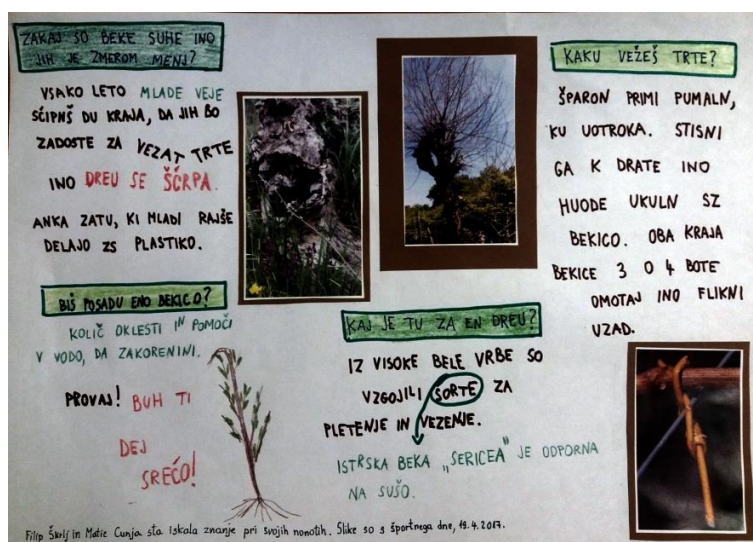 ZAKAJ SO BEKE SUHE INO
JIH JE ZMEROM MENJ?
VSAKO LETO MLADE VEJE
ŠĆIPNŠ DU KRAJA, DA JIH BO
ZADOSTE ZA VEZAT TRTE
INO DREU SE ŠĆRPA.
ANKA ZATU, KI MLADI RAJŠE
DELAJO ZS PLASTIKO.
BIŠ POSADU ENO BEKICO?
KOLIČ OKLESTI IN POMOČI
V VODO, DA ZAKORENINI.
PROVAJ! BUH TI
DEJ
SREĆO!
KAJ JE TU ZA EN DREU?
IZ VISOKE BELE VRBE SO
VZGOJILI SORTE ZA
PLETENJE IN VEZENJE.
ISTRSKA BEKA „SERICEA" JE ODPORNA
NA SUŠO.
KAKU VEŽEŠ TRTE?
ŠPARON PRIMI PUMALN,
KU UOTROKA. STISNI
GA K DRATE INO
HUODE UKULN SZ
BEKICO. OBA KRAJA
BEKICE 3 O 4 BOTE
OMOTAJ INO FLIKNI
UZAD.
Filip Škrlj in Matic Cunja sta iskala znanje pri svojih nonotih. Slike so s športnega dne, 19.4.2017.